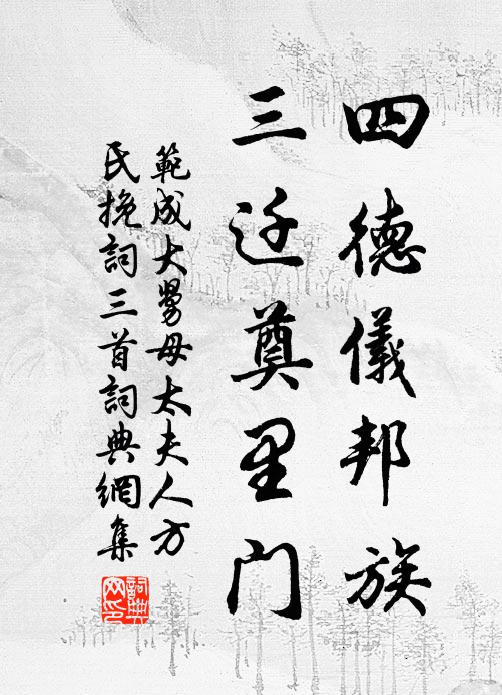 四德儀邦族
三迁奠里门
範成大舅母太夫人方
氏挽詞三首詞典網集